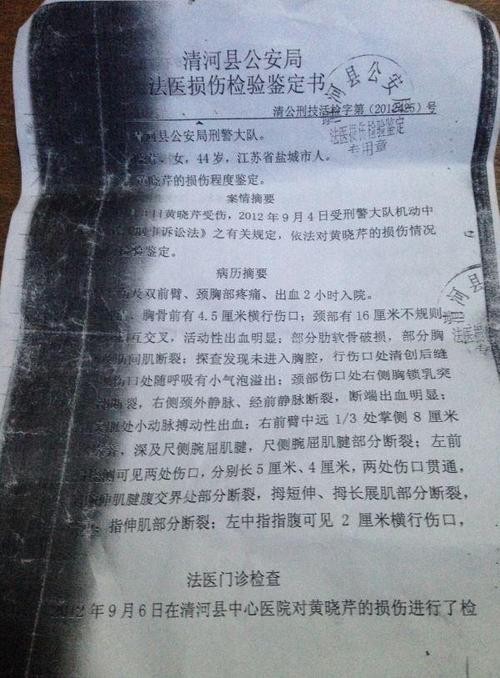 清河县公安局
法医损伤检验鉴定书
清公刑技活检字第(2012425)号
清河县公安局刑警大队。
女，44岁，江苏省盐城市人。
黄晓芹的损伤程度鉴定。
案情摘要
日黄晓芹受伤，2012年9月4日受刑警大队机动中
事诉讼法》之有关规定，依法对黄晓芹的损伤情况
检验鉴定。
病历摘要
及双前臂、颈胸部疼痛、出血2小时入院。
胸骨前有4.5厘米横行伤口；颈部有16厘米不规则
互交叉，活动性出血明显；部分肋软骨破损，部分胸
肋间肌断裂；探查发现未进入胸腔，行伤口处清创后缝
伤口处随呼吸有小气泡溢出；颈部伤口处右侧胸锁乳突
断裂，右侧颈外静脉、经前静脉断裂，断端出血明显；
处小动脉搏动性出血；右前臂中远1/3处掌侧8厘米
深及尺侧腕屈肌腱，尺侧腕屈肌腱部分断裂；左前
可见两处伤口，分别长5厘米、4厘米，两处伤口贯通，
伸肌腱腹交界处部分断裂，拇短伸、拇长展肌部分断裂，
指伸肌部分断裂；左中指指腹可见2厘米横行伤口，
法医门诊检查
2012年9月6日在清河县中心医院对黄晓芹的损伤进行了检
河县公安
法医损伤检验鉴定
专用章
清河县
法医损